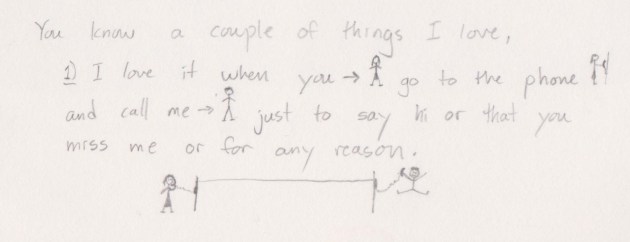 You know a couple of things I love,
1) I love it when you → go to the phone
and call me → just to say hi or that you
miss me or for any reason.